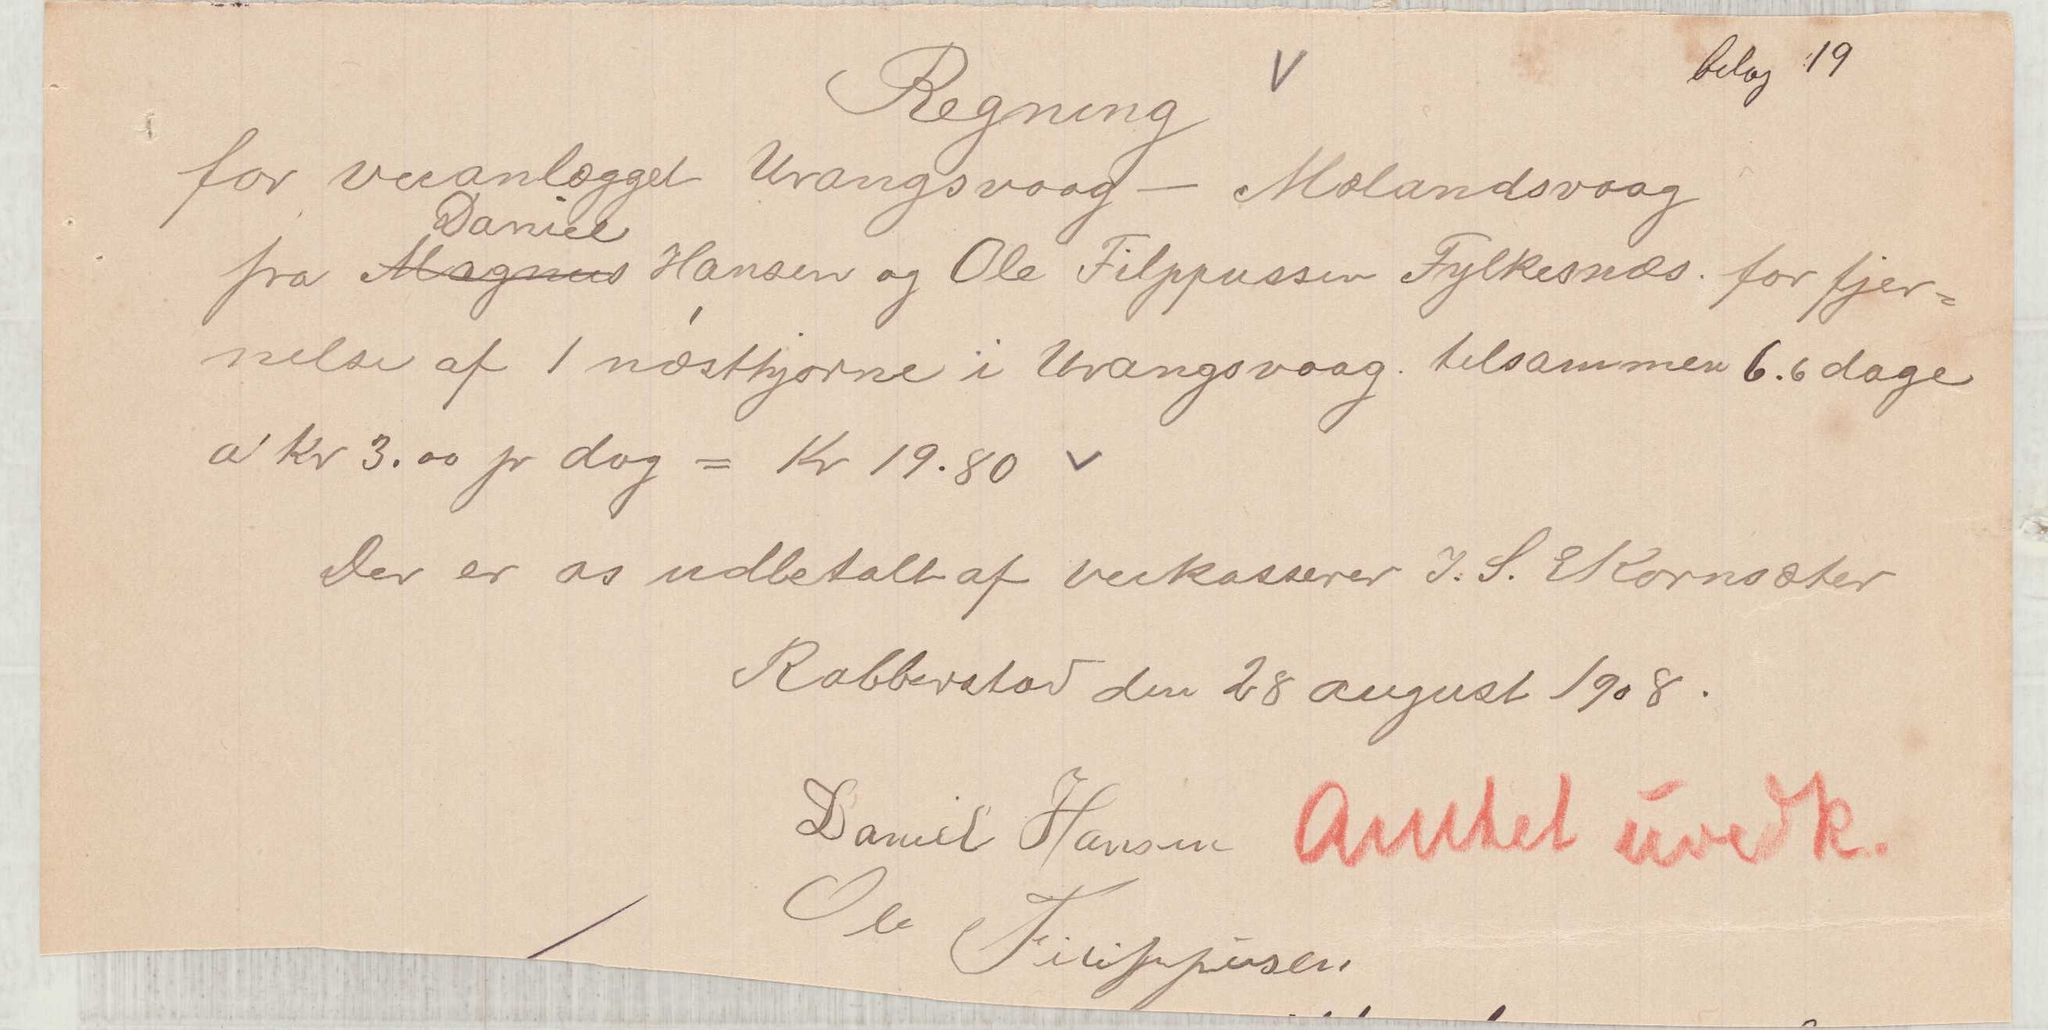 belag 19
Regning
for veianlægget Urangsvaag — Mælandsvaag
Daniel
fra Magnus Hansen og Ole Filppussen Fylkesnæs. for fjer=
nelse af 1 næsthjørne i Urangsvaag. tilsammen 6.6 dage
a' kr 3.00 pr dag = Kr 19.80
Der er os udbetalt af veikasserer J. S. Ekornsæter
Rabberstad den 28 august 1908.
Daniel Hansen
Amtet uvedk.
Ole Filippusen